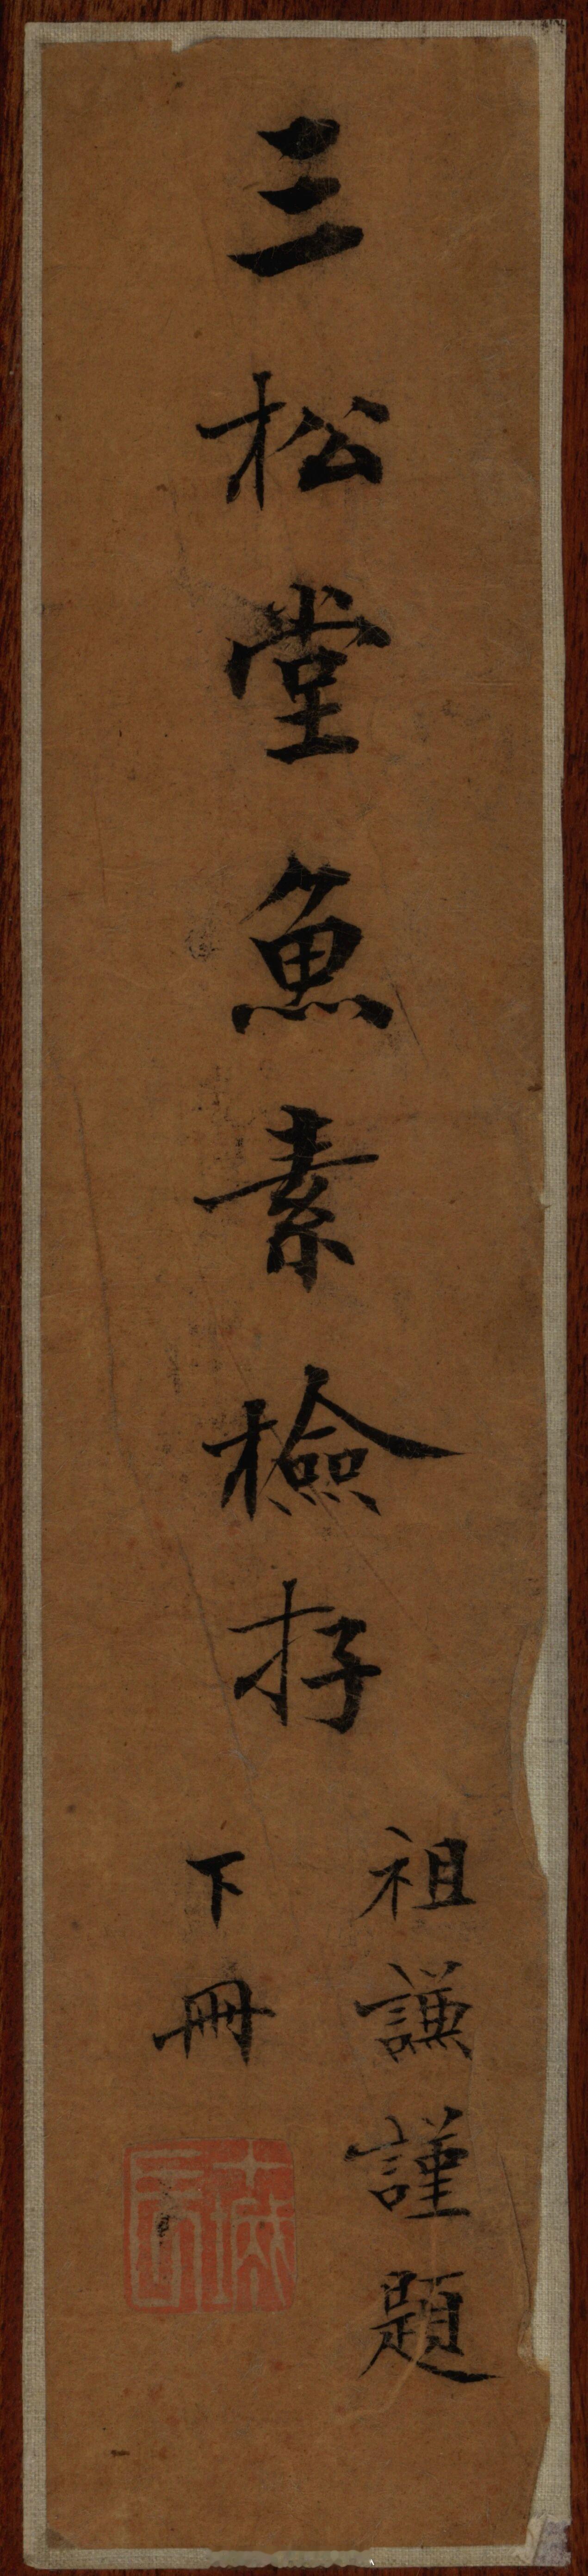 三松堂魚素檢存
祖謙謹題
下冊